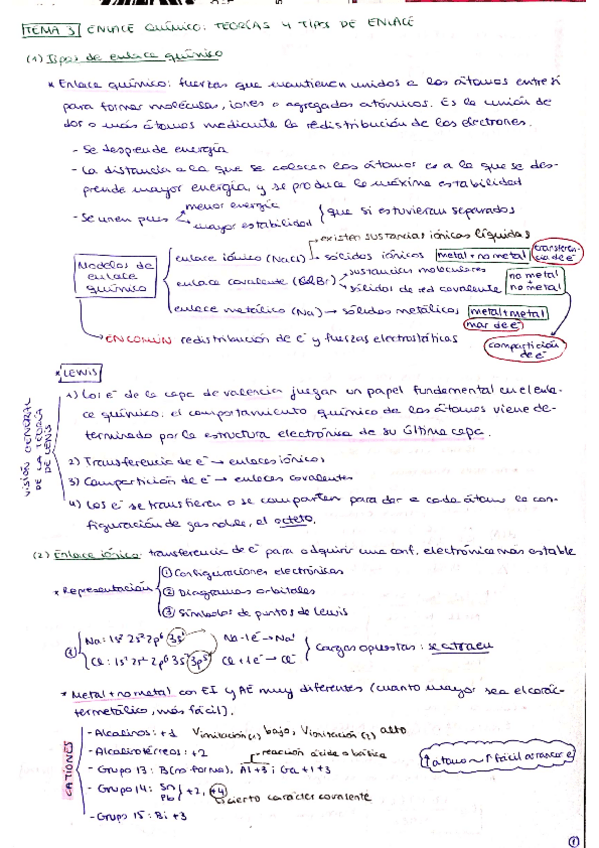 TEMA 3 ENLACE QUÍMICO: TEORÍAS Y TIPOS DE ENLACE
(1) Tipos de enlace químico
* Enlace químico: fuerzas que mantienen unidos a los átomos entre sí
para formar moléculas, iones o agregados atómicos. Es la unión de
dos o más átomos mediante la redistribución de los electrones.
- Se desprende energía
- La distancia a la que se colocan los átomos es a la que se des-
prende mayor energía, y se produce la máxima estabilidad
menor energía
- Se unen pues
mayor estabilidad
que si estuvieran separados
existen sustancias iónicas líquidas
Modelos de enlace químico
enlace iónico (NaCl) → sólidos iónicos metal + no metal transferencia de e⁻
sustancias moleculares
enlace covalente
sólidos de red covalente no metal + no metal
enlace metálico (Na) → sólidos metálicos metal + metal
mar de e⁻
compartición de e⁻
EN COMÚN redistribución de e⁻ y fuerzas electrostáticas
* LEWIS
VISIÓN GENERAL DE LA TEORÍA DE LEWIS
1) Los e⁻ de la capa de valencia juegan un papel fundamental en el enla-
ce químico: el comportamiento químico de los átomos viene de-
terminado por la estructura electrónica de su última capa.
2) Transferencia de e⁻ → enlaces iónicos
3) Compartición de e⁻ → enlaces covalentes
4) Los e⁻ se transfieren o se comparten para dar a cada átomo la con-
figuración de gas noble, el octeto.
(2) Enlace iónico: transferencia de e⁻ para adquirir una conf. electrónica más estable
* Representación
① Configuraciones electrónicas
② Diagramas orbitales
③ Símbolos de puntos de Lewis
①
Na: 1s² 2s² 2p⁶ 3s¹ Na - 1e⁻ → Na⁺
Cl: 1s² 2s² 2p⁶ 3s² 3p⁵ Cl + 1e⁻ → Cl⁻
Cargas opuestas: se atraen
* Metal + no metal con EI y AE muy diferentes (cuanto mayor sea el carác-
ter metálico, más fácil).
CATIONES
- Alcalinos: +1 bajo, alto
- Alcalinotérreos: +2
reacción ácida o básica
- Grupo 13: B (no forma), Al +3; Ga +1 +3
- Grupo 14: Sn Pb +2, +4
cierto carácter covalente
- Grupo 15: Bi +3
↑ átomo ~ ↑ fácil arrancar e⁻
1